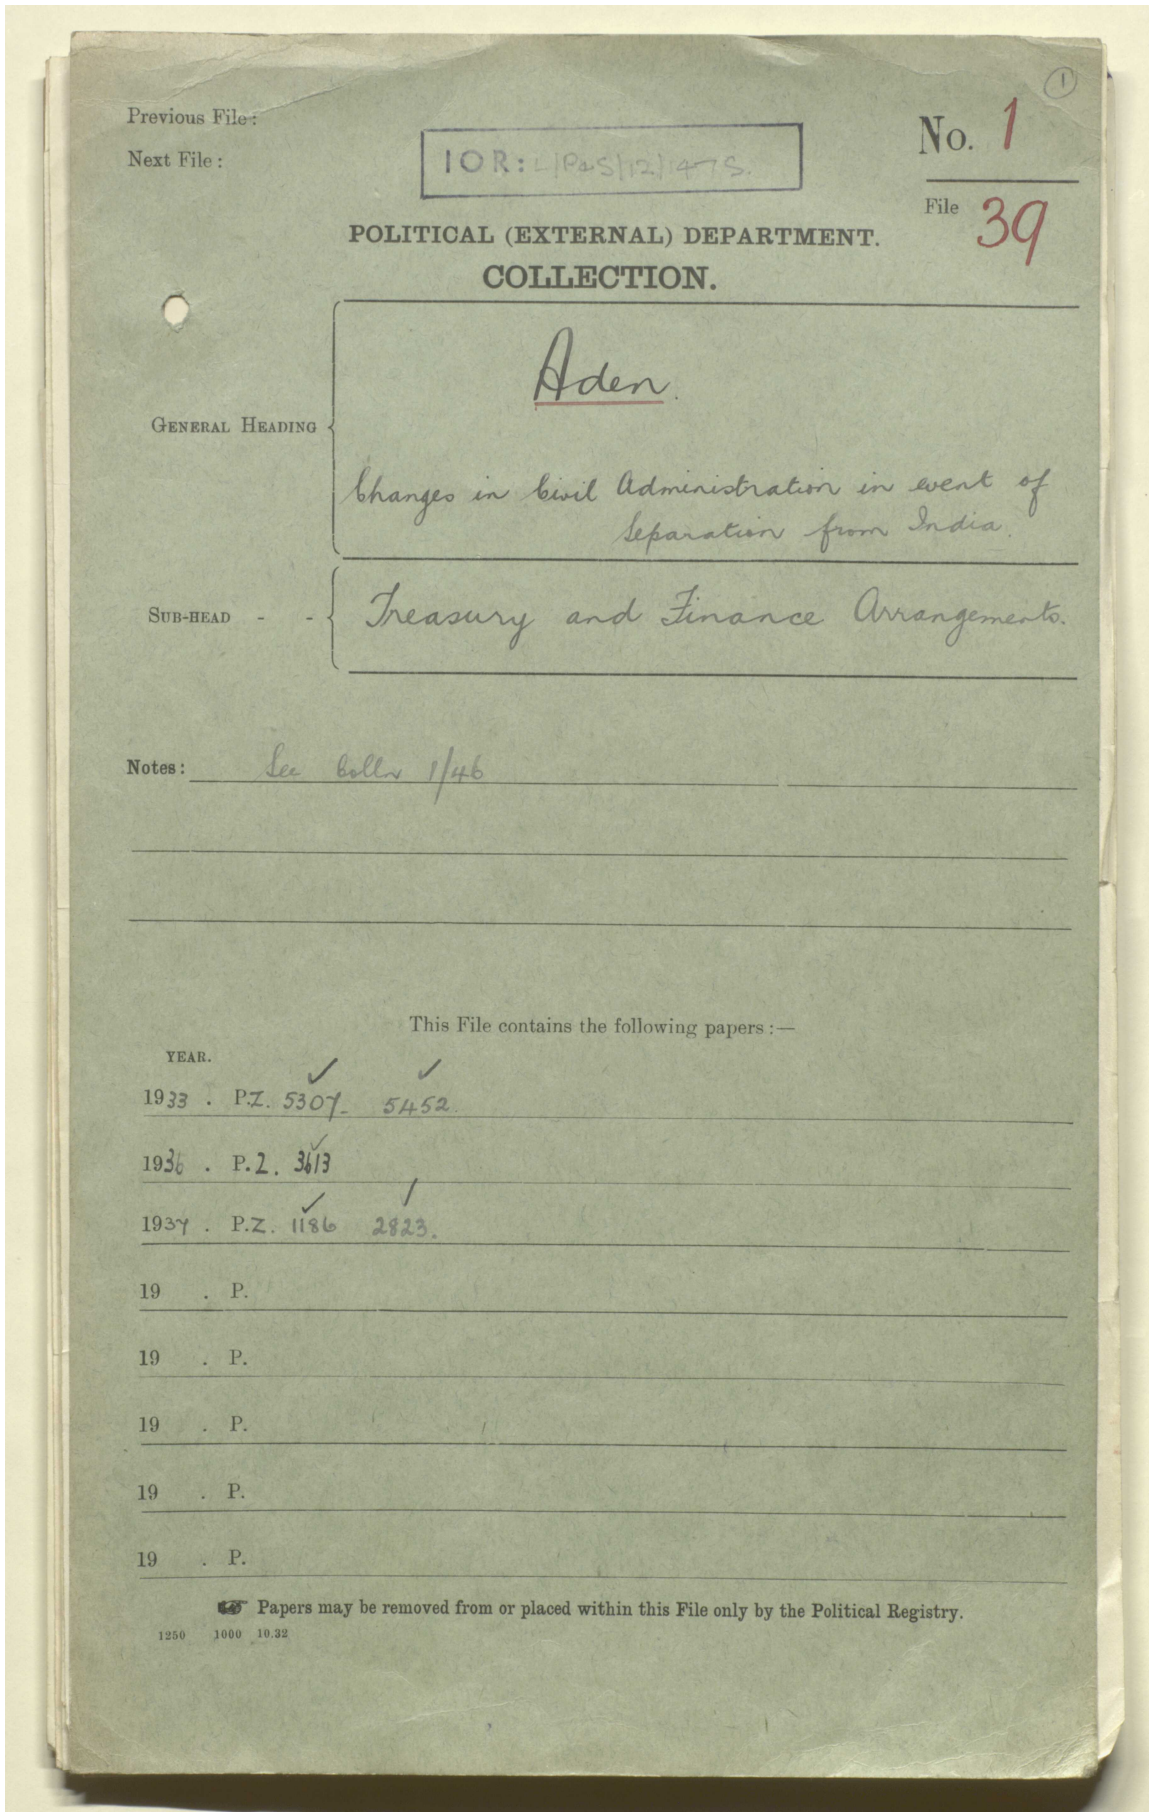 1
Previous File:
Next File:
IOR: L/P&S/12/1475.
No. 1
File 39
POLITICAL (EXTERNAL) DEPARTMENT.
COLLECTION.
GENERAL HEADING
Aden.
Changes in Civil Administration in event of
Separation from India.
SUB-HEAD - -
Treasury and Finance Arrangements.
Notes: See Colln 1/46
This File contains the following papers:—
YEAR.
1933 . P.Z. 5307. 5452.
1936 . P.Z. 3613
1937 . P.Z. 1186 2823.
19 . P.
19 . P.
19 . P.
19 . P.
19 . P.
☛ Papers may be removed from or placed within this File only by the Political Registry.
1250 1000 10.32